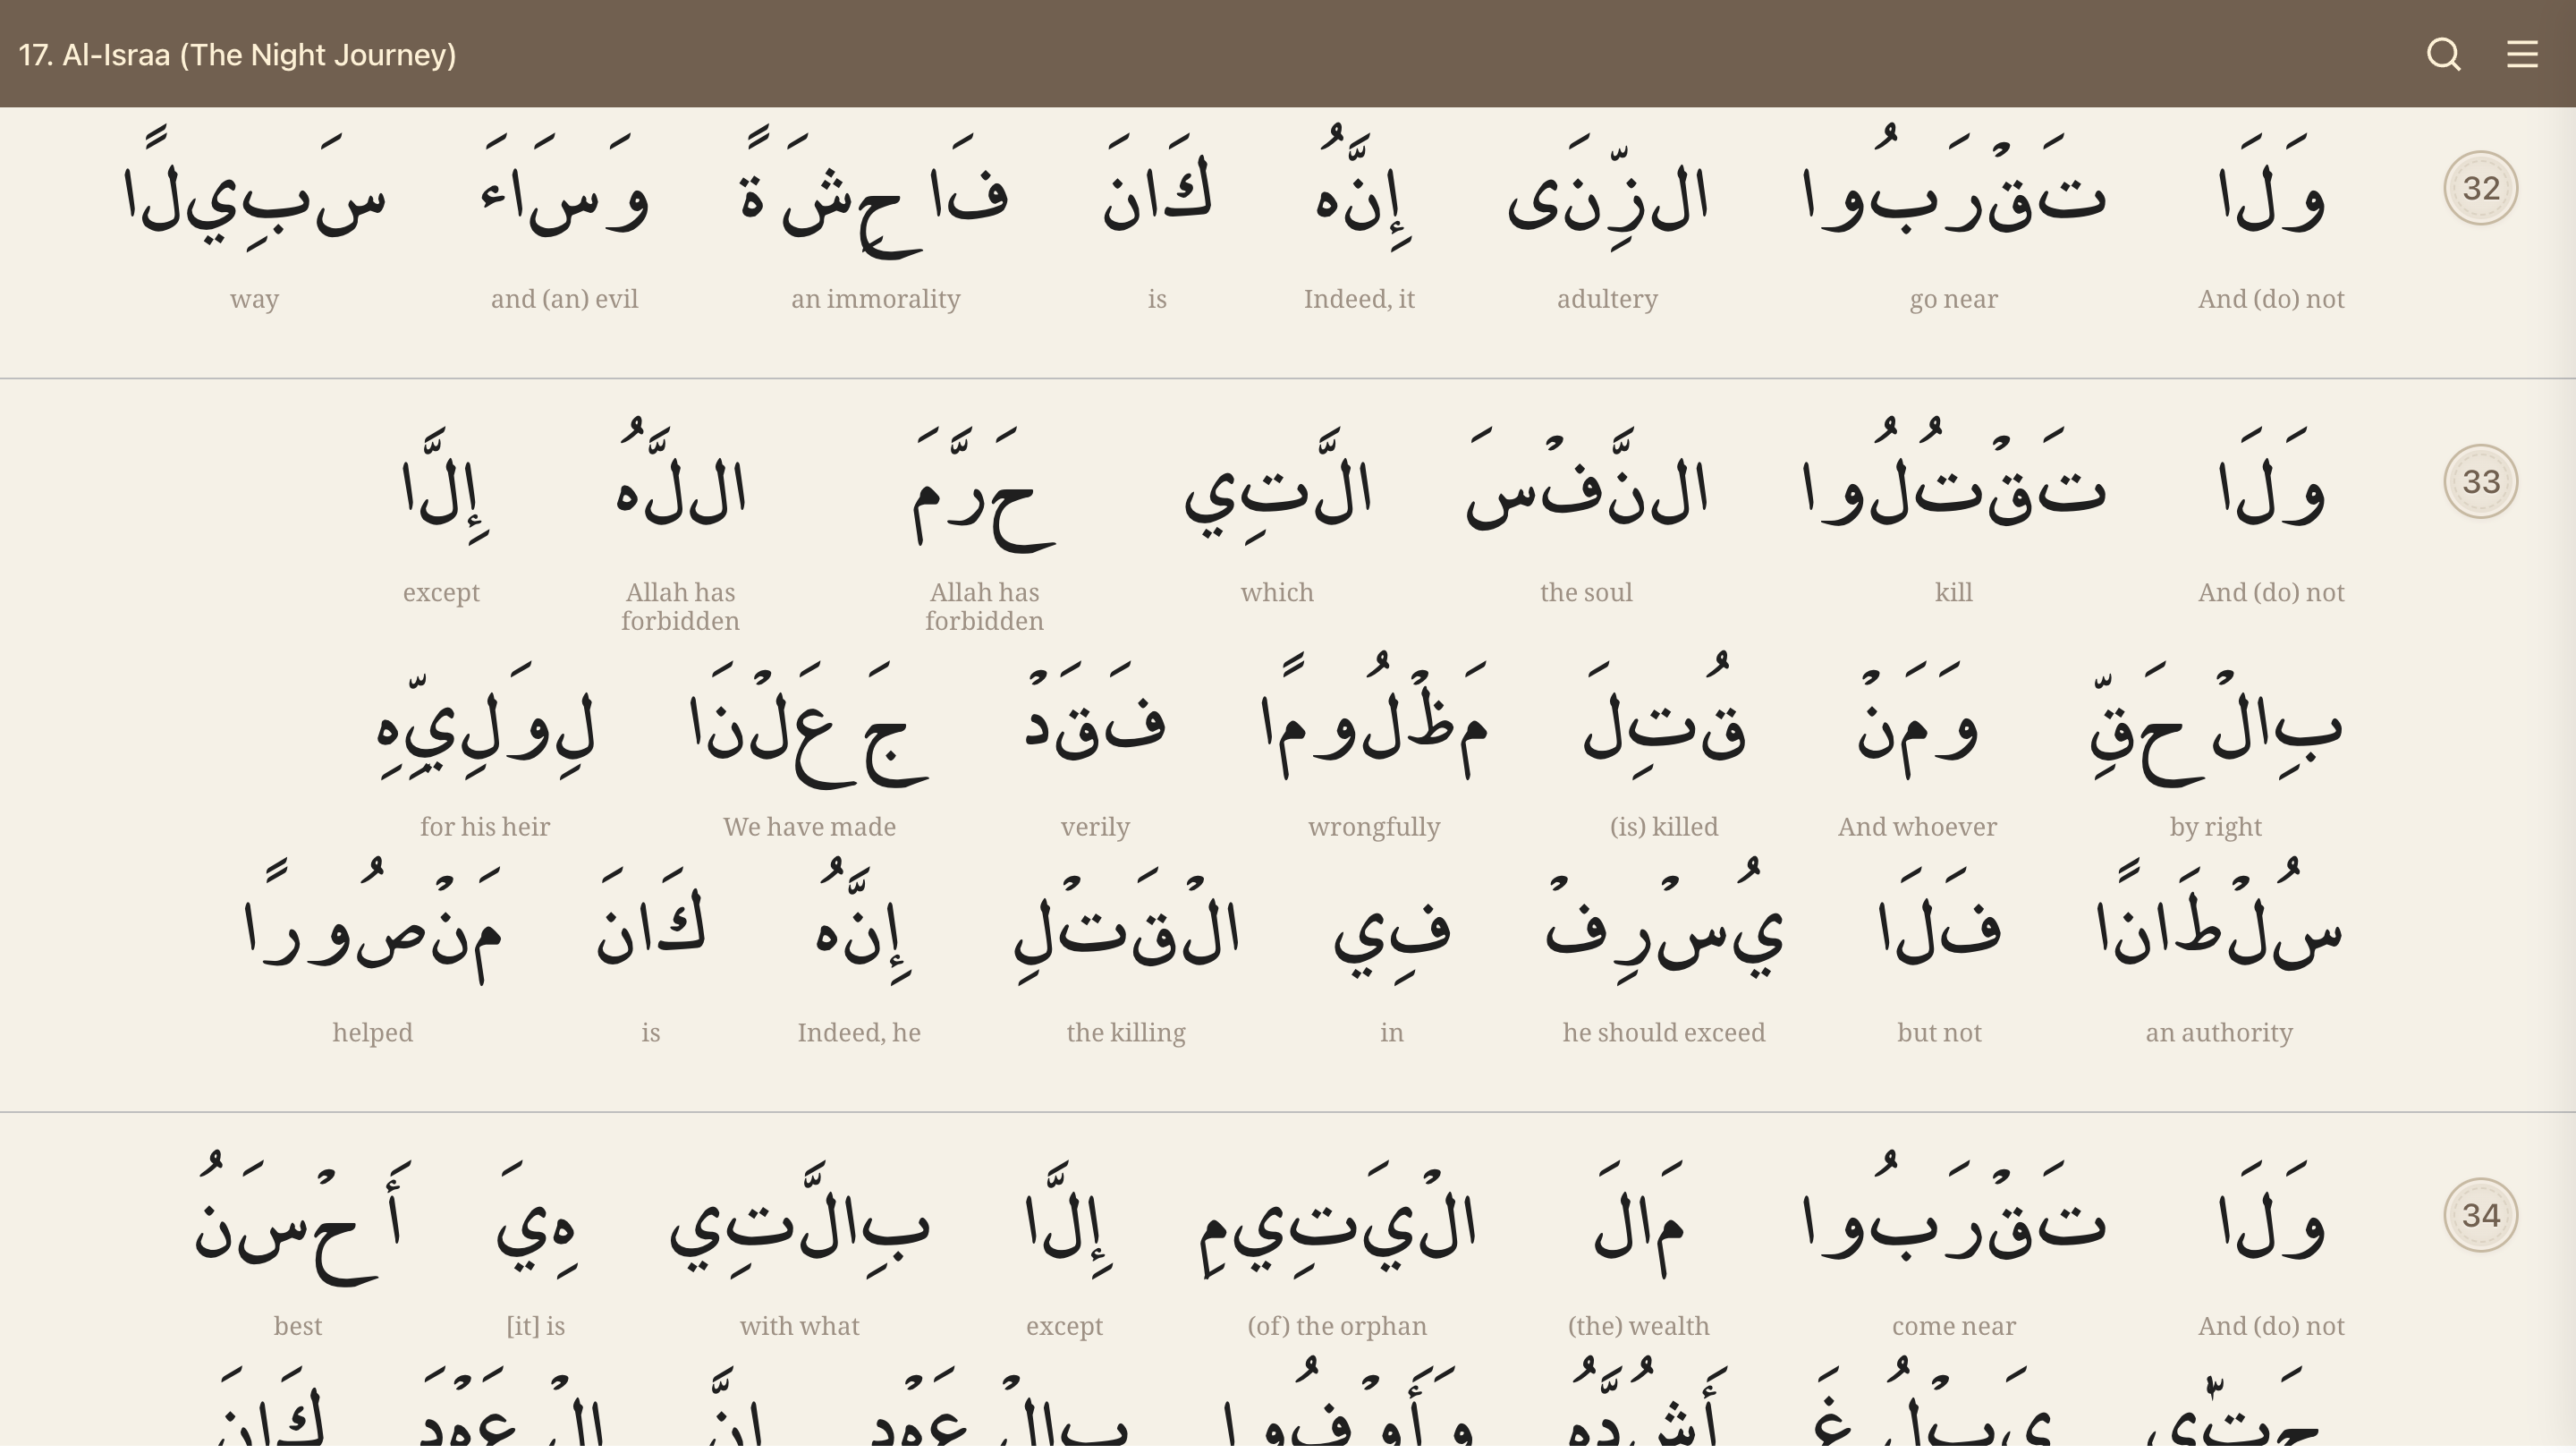 17. Al-Israa (The Night Journey)
32
وَلَا تَقْرَبُوا الزِّنَى إِنَّهُ كَانَ فَاحِشَةً وَسَاءَ سَبِيلًا
And (do) not go near adultery Indeed, it is an immorality and (an) evil way
33
وَلَا تَقْتُلُوا النَّفْسَ الَّتِي حَرَّمَ اللَّهُ إِلَّا
And (do) not kill the soul which Allah has forbidden Allah has forbidden except
بِالْحَقِّ وَمَنْ قُتِلَ مَظْلُومًا فَقَدْ جَعَلْنَا لِوَلِيِّهِ
by right And whoever (is) killed wrongfully verily We have made for his heir
سُلْطَانًا فَلَا يُسْرِفْ فِي الْقَتْلِ إِنَّهُ كَانَ مَنْصُورًا
an authority but not he should exceed in the killing Indeed, he is helped
34
وَلَا تَقْرَبُوا مَالَ الْيَتِيمِ إِلَّا بِالَّتِي هِيَ أَحْسَنُ
And (do) not come near (the) wealth (of) the orphan except with what [it] is best
حَتَّى يَبْلُغَ أَشُدَّهُ وَأَوْفُوا بِالْعَهْدِ إِنَّ الْعَهْدَ كَانَ